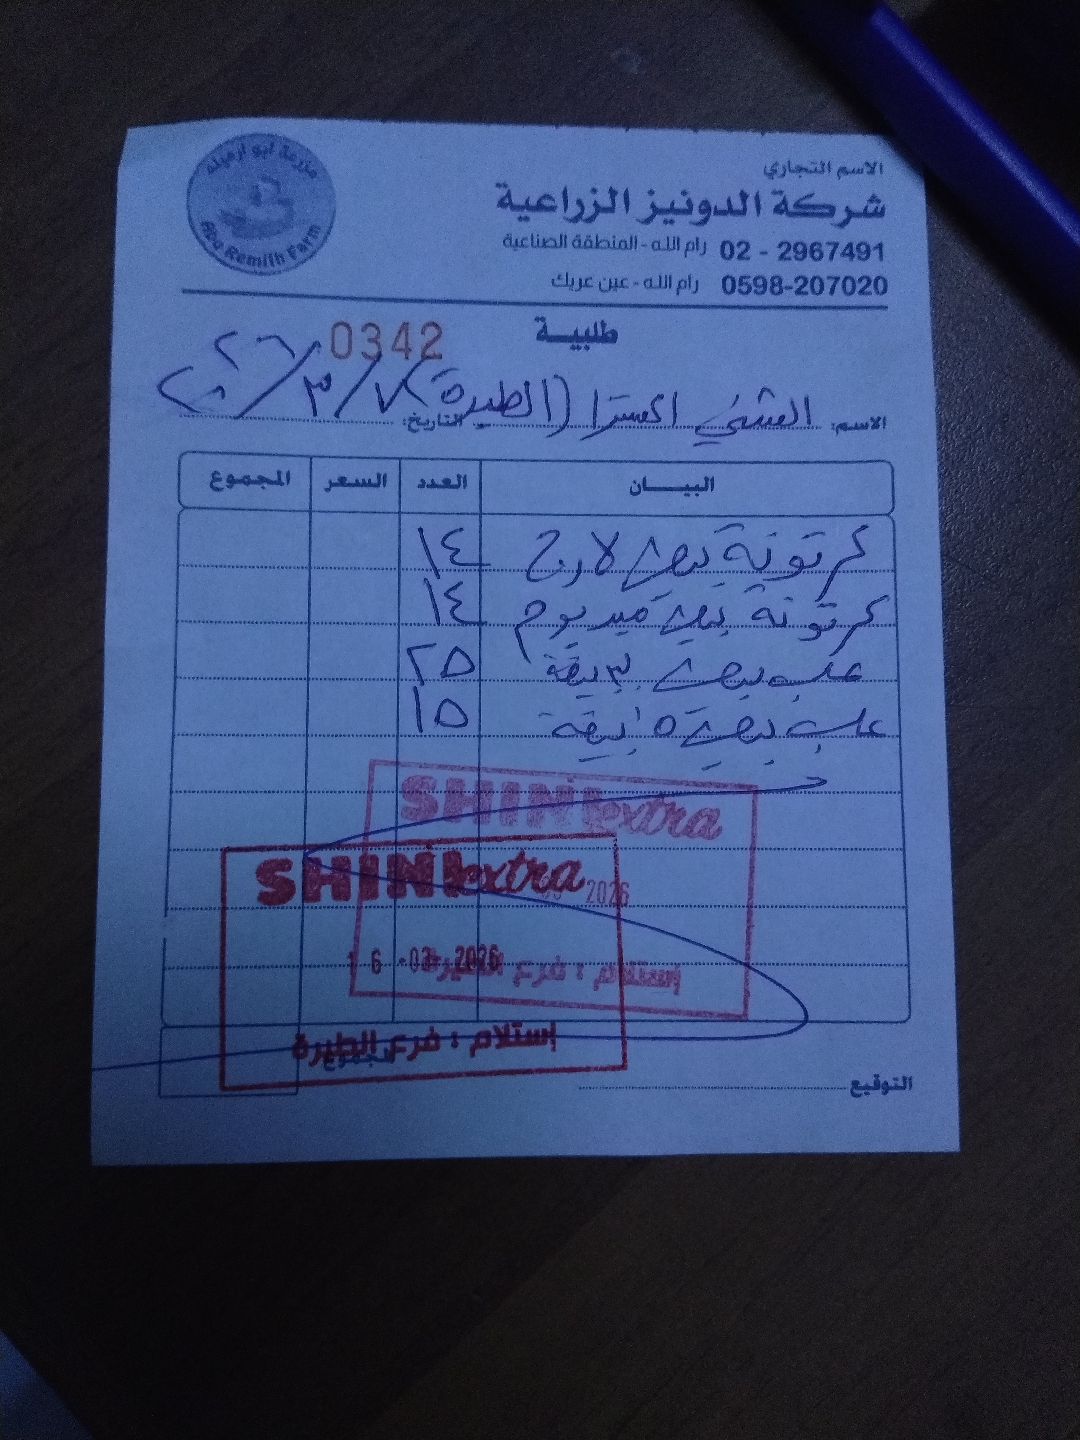 مزرعة ابو ارميلة
Abu Remilh Farm
الاسم التجاري
شركة الدونيز الزراعية
02 - 2967491 رام الله - المنطقة الصناعية
0598-207020 رام الله - عين عريك
طلبية
0342
الاسم: الشني اكسترا (الطيرة) التاريخ: ٧/٣/٢٠٢٦
البيــــان العدد السعر المجموع
كرتونة بيض لارج ١٤
كرتونة بيض ميديوم ١٤
علب بيض ٢٥
علب بيض ١٥
SHINI extra
2026
إستلام : فرع الطيرة
SHINI extra
16 -03- 2026
إستلام : فرع الطيرة
المجموع
التوقيع